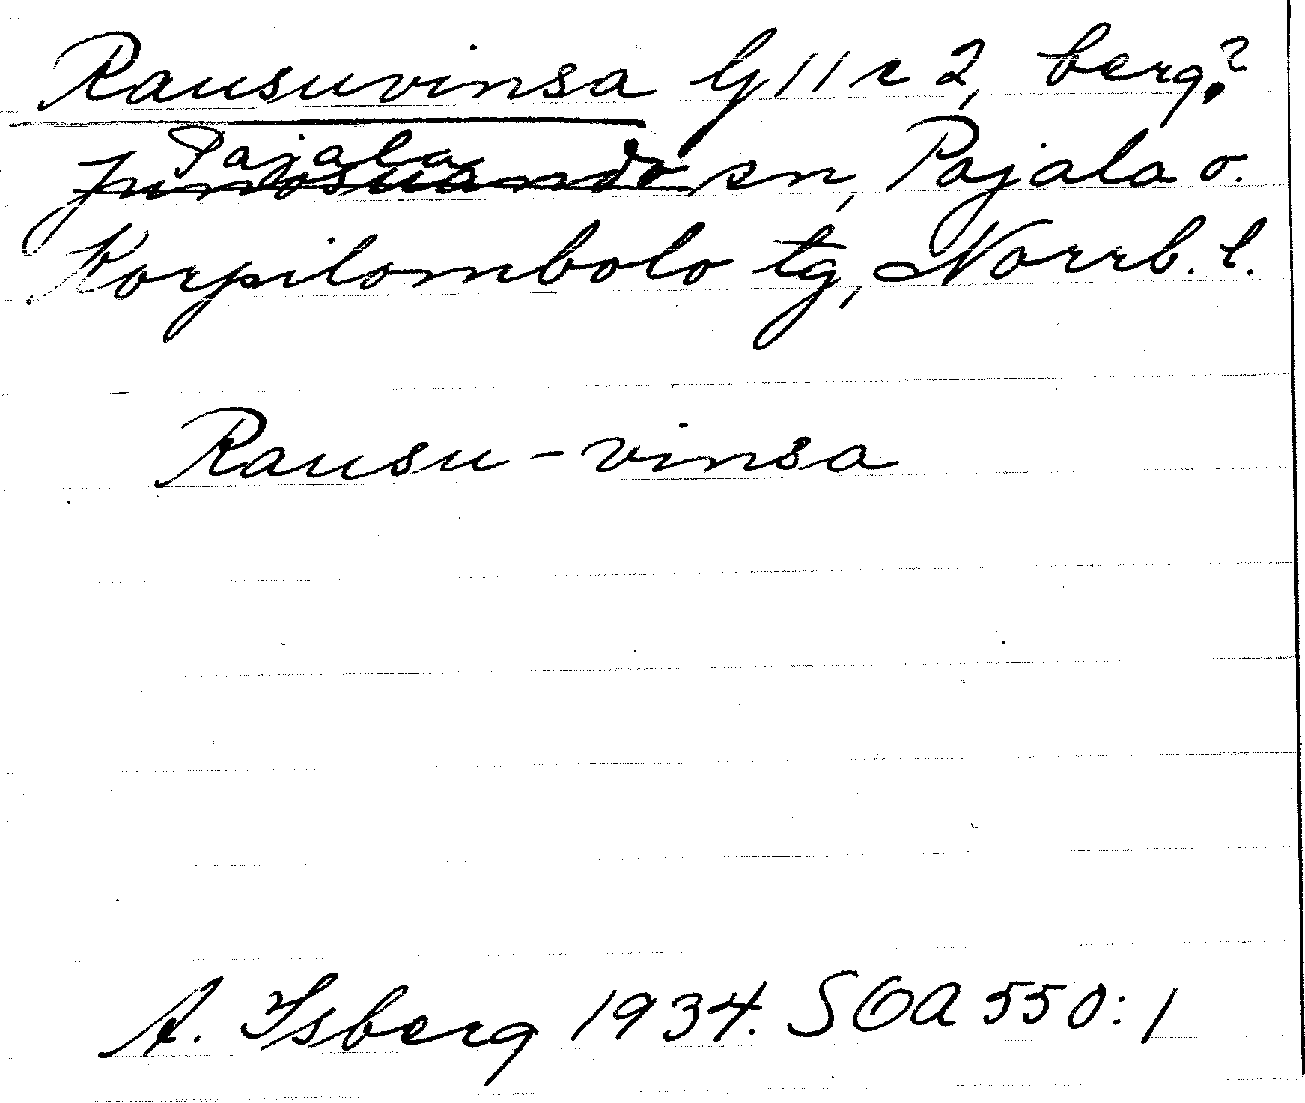 Rausuvinsa G11c2, berg?
Pajala
Junosuando sn, Pajala o.
Korpilombolo tg, Norrb. l.
Rausu-vinsa
A. Isberg 1934. SOA 550:1